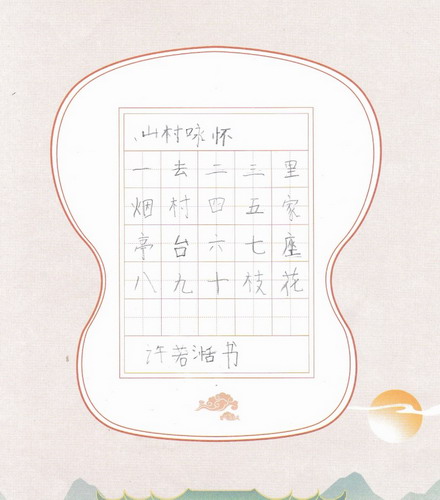 山村咏怀
一去二三里
烟村四五家
亭台六七座
八九十枝花
许若湉书